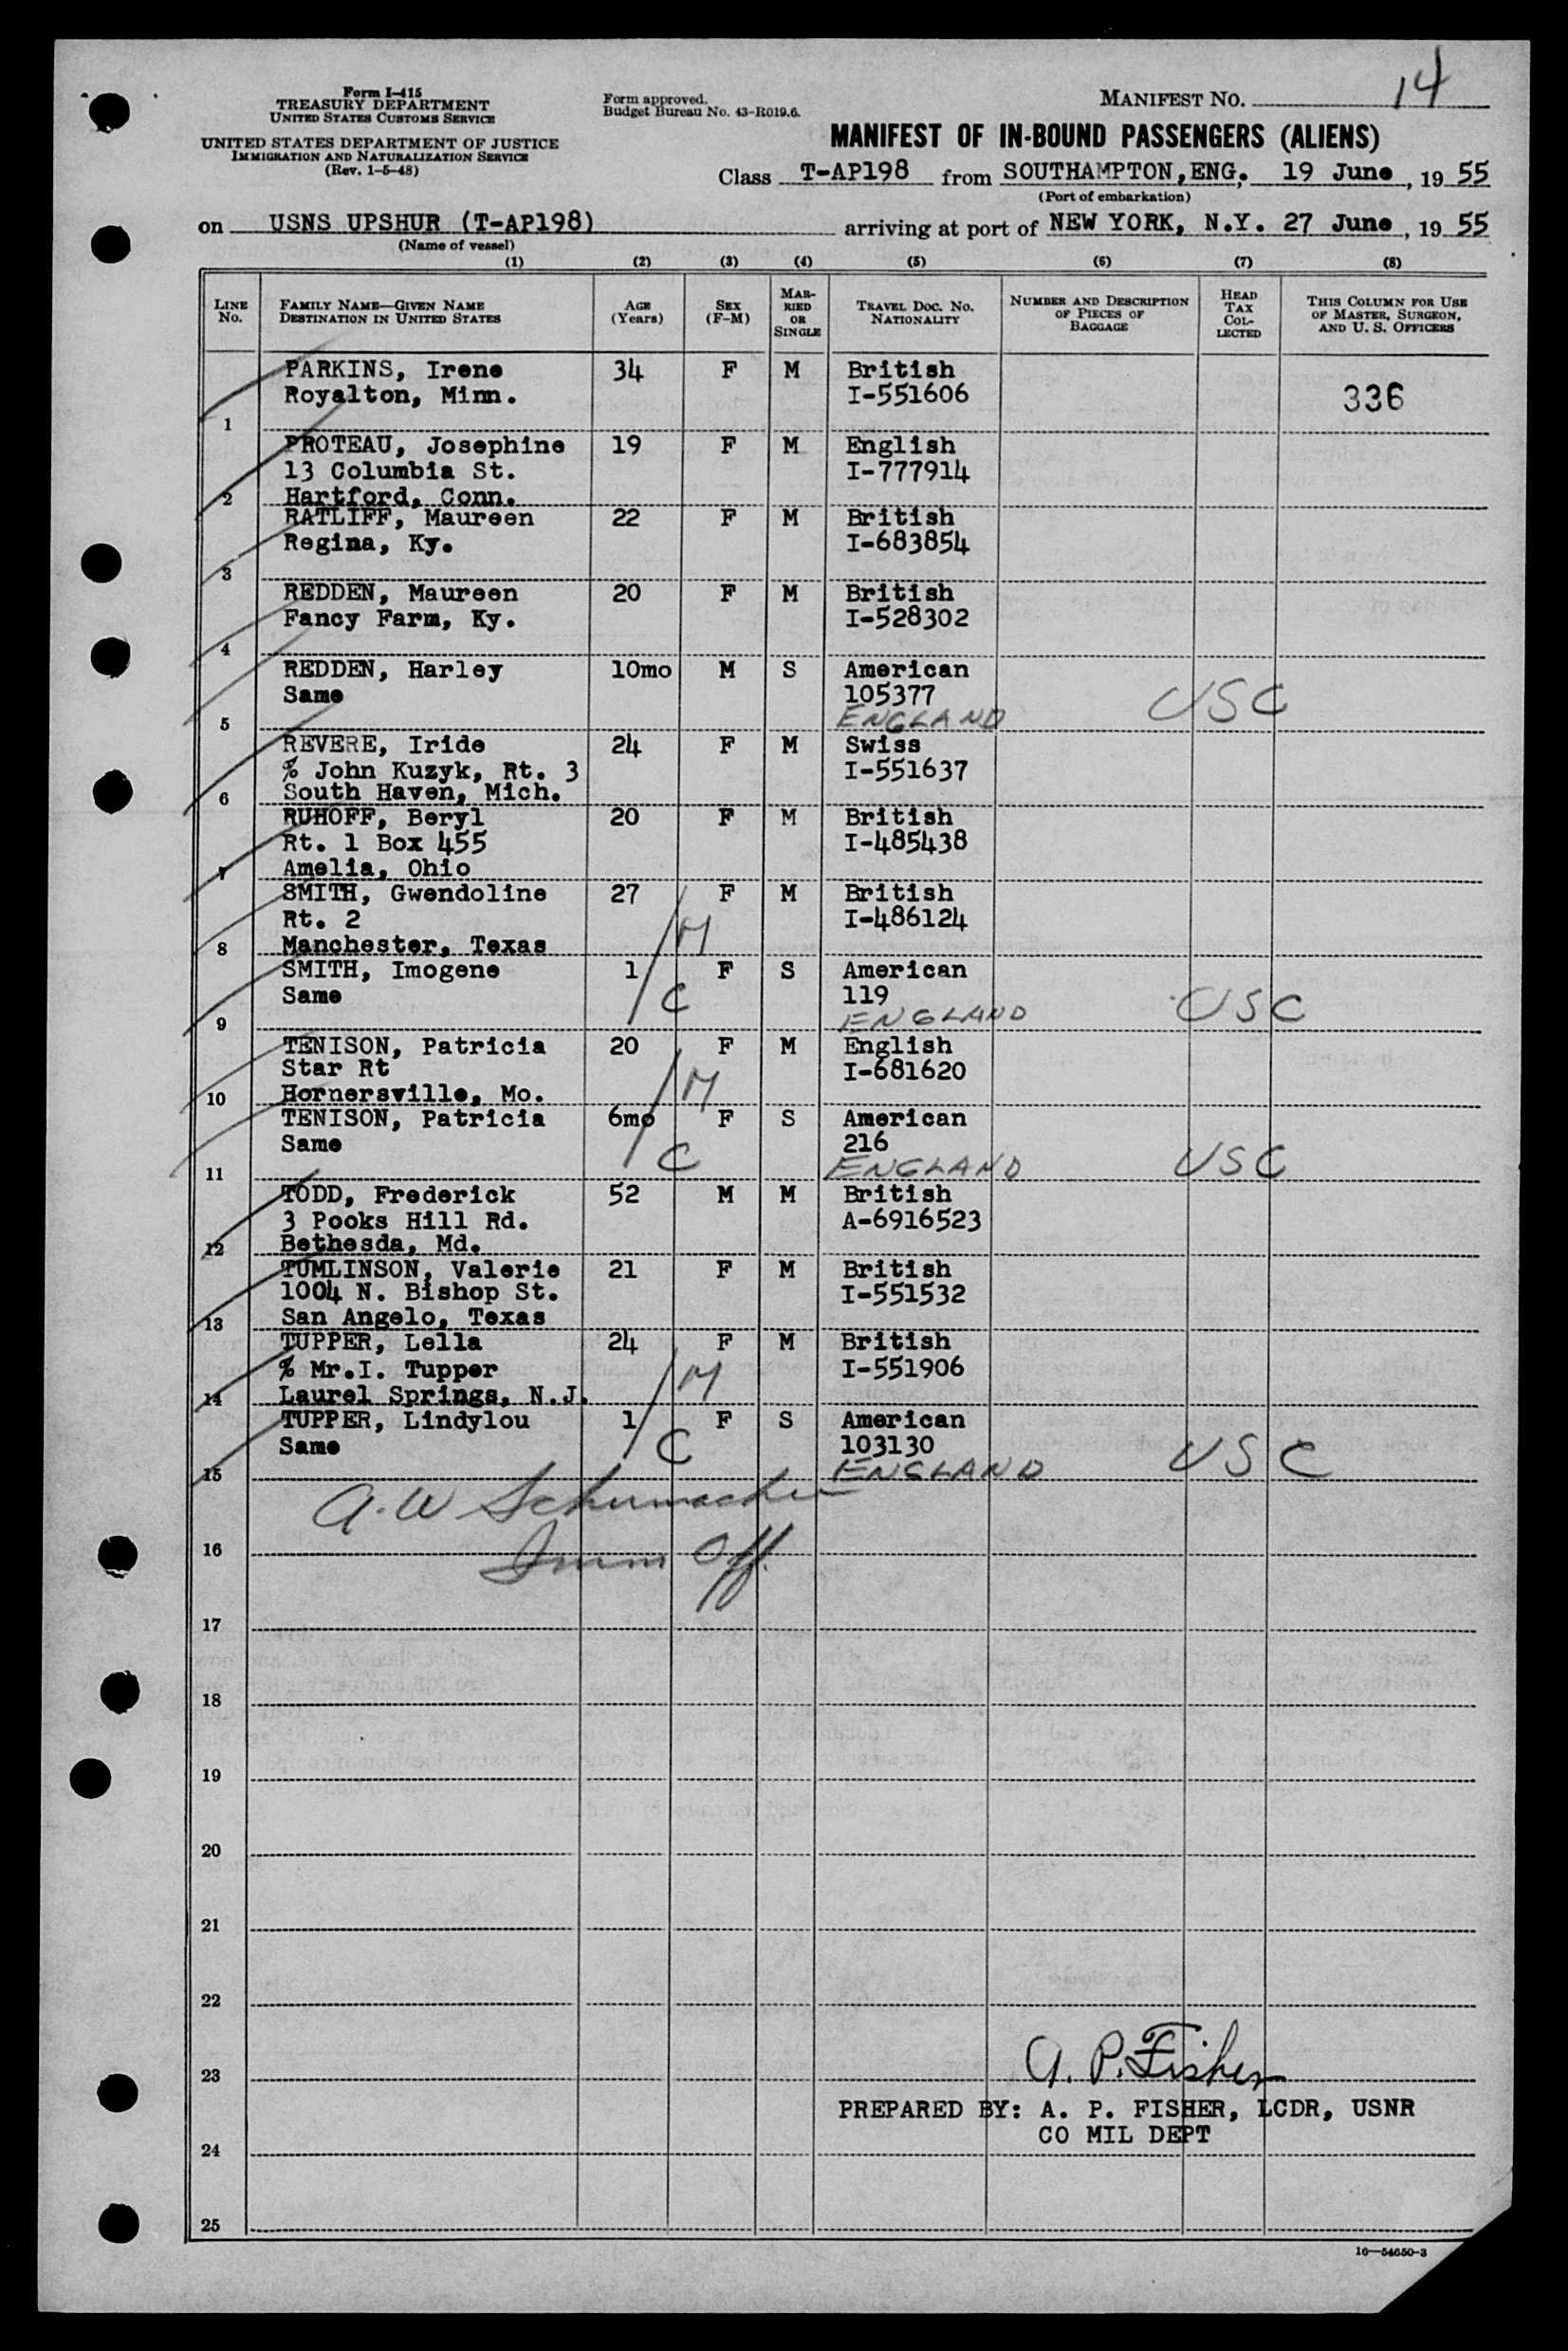 14
Form I-415
TREASURY DEPARTMENT
UNITED STATES CUSTOMS SERVICE
UNITED STATES DEPARTMENT OF JUSTICE
IMMIGRATION AND NATURALIZATION SERVICE
(Rev. 1-5-48)
Form approved.
Budget Bureau No. 43-R019.6.
MANIFEST NO.
MANIFEST OF IN-BOUND PASSENGERS (ALIENS)
Class T-AP198 from SOUTHAMPTON, ENG. 19 June, 19 55
(Port of embarkation)
on USNS UPSHUR (T-AP198) arriving at port of NEW YORK, N.Y. 27 June, 19 55
(Name of vessel)
(1) (2) (3) (4) (5) (6) (7) (8)
LINE No. FAMILY NAME—GIVEN NAME DESTINATION IN UNITED STATES AGE (Years) SEX (F-M) MAR-RIED OR SINGLE TRAVEL DOC. NO. NATIONALITY NUMBER AND DESCRIPTION OF PIECES OF BAGGAGE HEAD TAX COL-LECTED THIS COLUMN FOR USE OF MASTER, SURGEON, AND U. S. OFFICERS
PARKINS, Irene 34 F M British
Royalton, Minn. I-551606 336
1
PROTEAU, Josephine 19 F M English
13 Columbia St. I-777914
2 Hartford, Conn.
RATLIFF, Maureen 22 F M British
Regina, Ky. I-683854
3
REDDEN, Maureen 20 F M British
Fancy Farm, Ky. I-528302
4
REDDEN, Harley 10mo M S American
Same 105377 USC
5 ENGLAND
REVERE, Iride 24 F M Swiss
% John Kuzyk, Rt. 3 I-551637
6 South Haven, Mich.
RUHOFF, Beryl 20 F M British
Rt. 1 Box 455 I-485438
7 Amelia, Ohio
SMITH, Gwendoline 27 F M British
Rt. 2 M I-486124
8 Manchester, Texas
SMITH, Imogene 1 F S American
Same C 119 USC
9 ENGLAND
TENISON, Patricia 20 F M English
Star Rt M I-681620
10 Hornersville, Mo.
TENISON, Patricia 6mo F S American
Same C 216 USC
11 ENGLAND
TODD, Frederick 52 M M British
3 Pooks Hill Rd. A-6916523
12 Bethesda, Md.
TUMLINSON, Valerie 21 F M British
1004 N. Bishop St. I-551532
13 San Angelo, Texas
TUPPER, Lella 24 F M British
% Mr.I. Tupper M I-551906
14 Laurel Springs, N.J.
TUPPER, Lindylou 1 F S American
Same C 103130 USC
15 ENGLAND
A. W Schumacher
16 Imm Off.
17
18
19
20
21
22
23 A. P. Fisher
PREPARED BY: A. P. FISHER, LCDR, USNR
24 CO MIL DEPT
25
16—54650-3